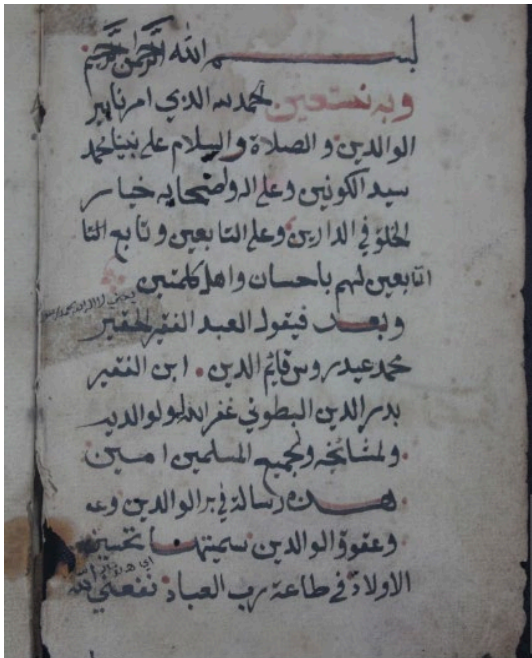 بسم الله الرحمن الرحيم
وبه نستعين الحمد لله الذي امرنا ببر
الوالدين والصلاة والسلام على نبينا محمد
سيد الكونين وعلى اله واصحابه خيار
الخلق في الدارين وعلى التابعين وتابع التا
التابعين لهم باحسان واهل كلمتين
وبعد فيقول العبد الفقير الحقير
محمد عيدروس قايم الدين ابن الفقير
بدر الدين البطوني غفر الله له ولوالديه
ولمشائخه ولجميع المسلمين امين
هذه رسالة في بر الوالدين وعه
وعقوق الوالدين سميتها تحسين
الاولاد في طاعة رب العباد نفعني الله